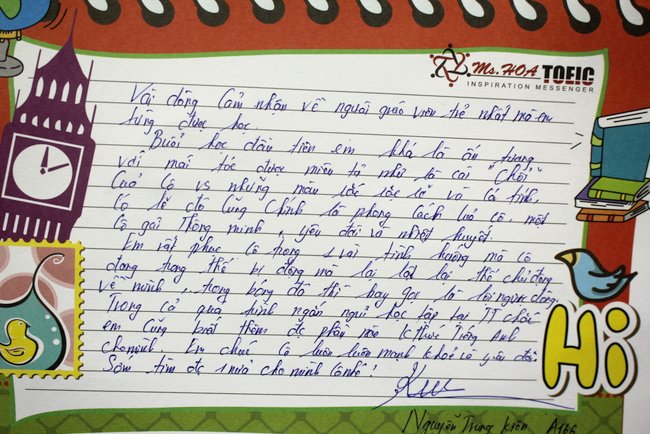 Ms. HOA TOEIC
INSPIRATION MESSENGER
Vài dòng cảm nhận về người giáo viên trẻ nhất mà em
từng được học.
Buổi học đầu tiên em khá là ấn tượng
với mái tóc được miêu tả như là cái "chổi"
của cô vs những màu sắc sặc sỡ và cá tính,
có lẽ đó cũng chính là phong cách của cô, một
cô gái thông minh, yêu đời và nhiệt huyết.
Em rất phục cô trong 1 vài tình huống mà cô
đang trong thế bị động mà lại lật lại thế chủ động
về mình, trong bóng đá thì hay gọi là lội ngược dòng.
Trong cả quá trình ngắn ngủi học tập tại TT chắc
em cũng biết thêm đc phần nào kthức Tiếng Anh
cho mình. Em chúc cô luôn luôn mạnh khoẻ và yêu đời
Sớm tìm đc 1 nửa cho mình cô nhé!
Nguyễn Trung Kiên A166
Hi